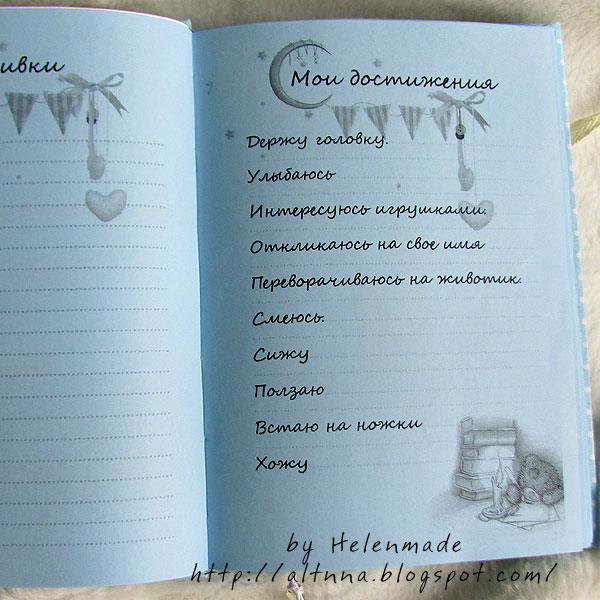 ивки
Мои достижения
Держу головку.
Улыбаюсь
Интересуюсь игрушками.
Откликаюсь на свое имя
Переворачиваюсь на животик.
Смеюсь.
Сижу
Ползаю
Встаю на ножки
Хожу
by Helenmade
http://altnna.blogspot.com/